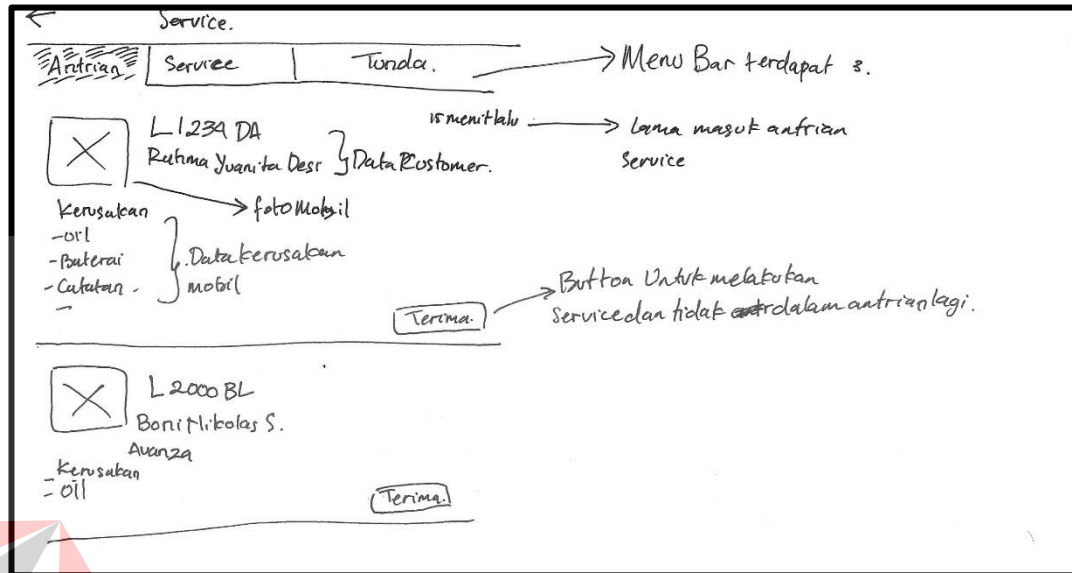 Service.
Antrian Service Tunda.
Menu Bar terdapat 3.
L 1234 DA
15 menit lalu
lama masuk antrian
Service
Rahma Yuanita Desi
Data Kustomer.
foto Mobil
Kerusakan
- oil
- Baterai
- Catatan.
-
Data kerusakan
mobil
Terima.
Button Untuk melakukan
Service dan tidak dalam antrian lagi.
L 2000 BL
Boni Nikolas S.
Avanza
Kerusakan
- oil
Terima.